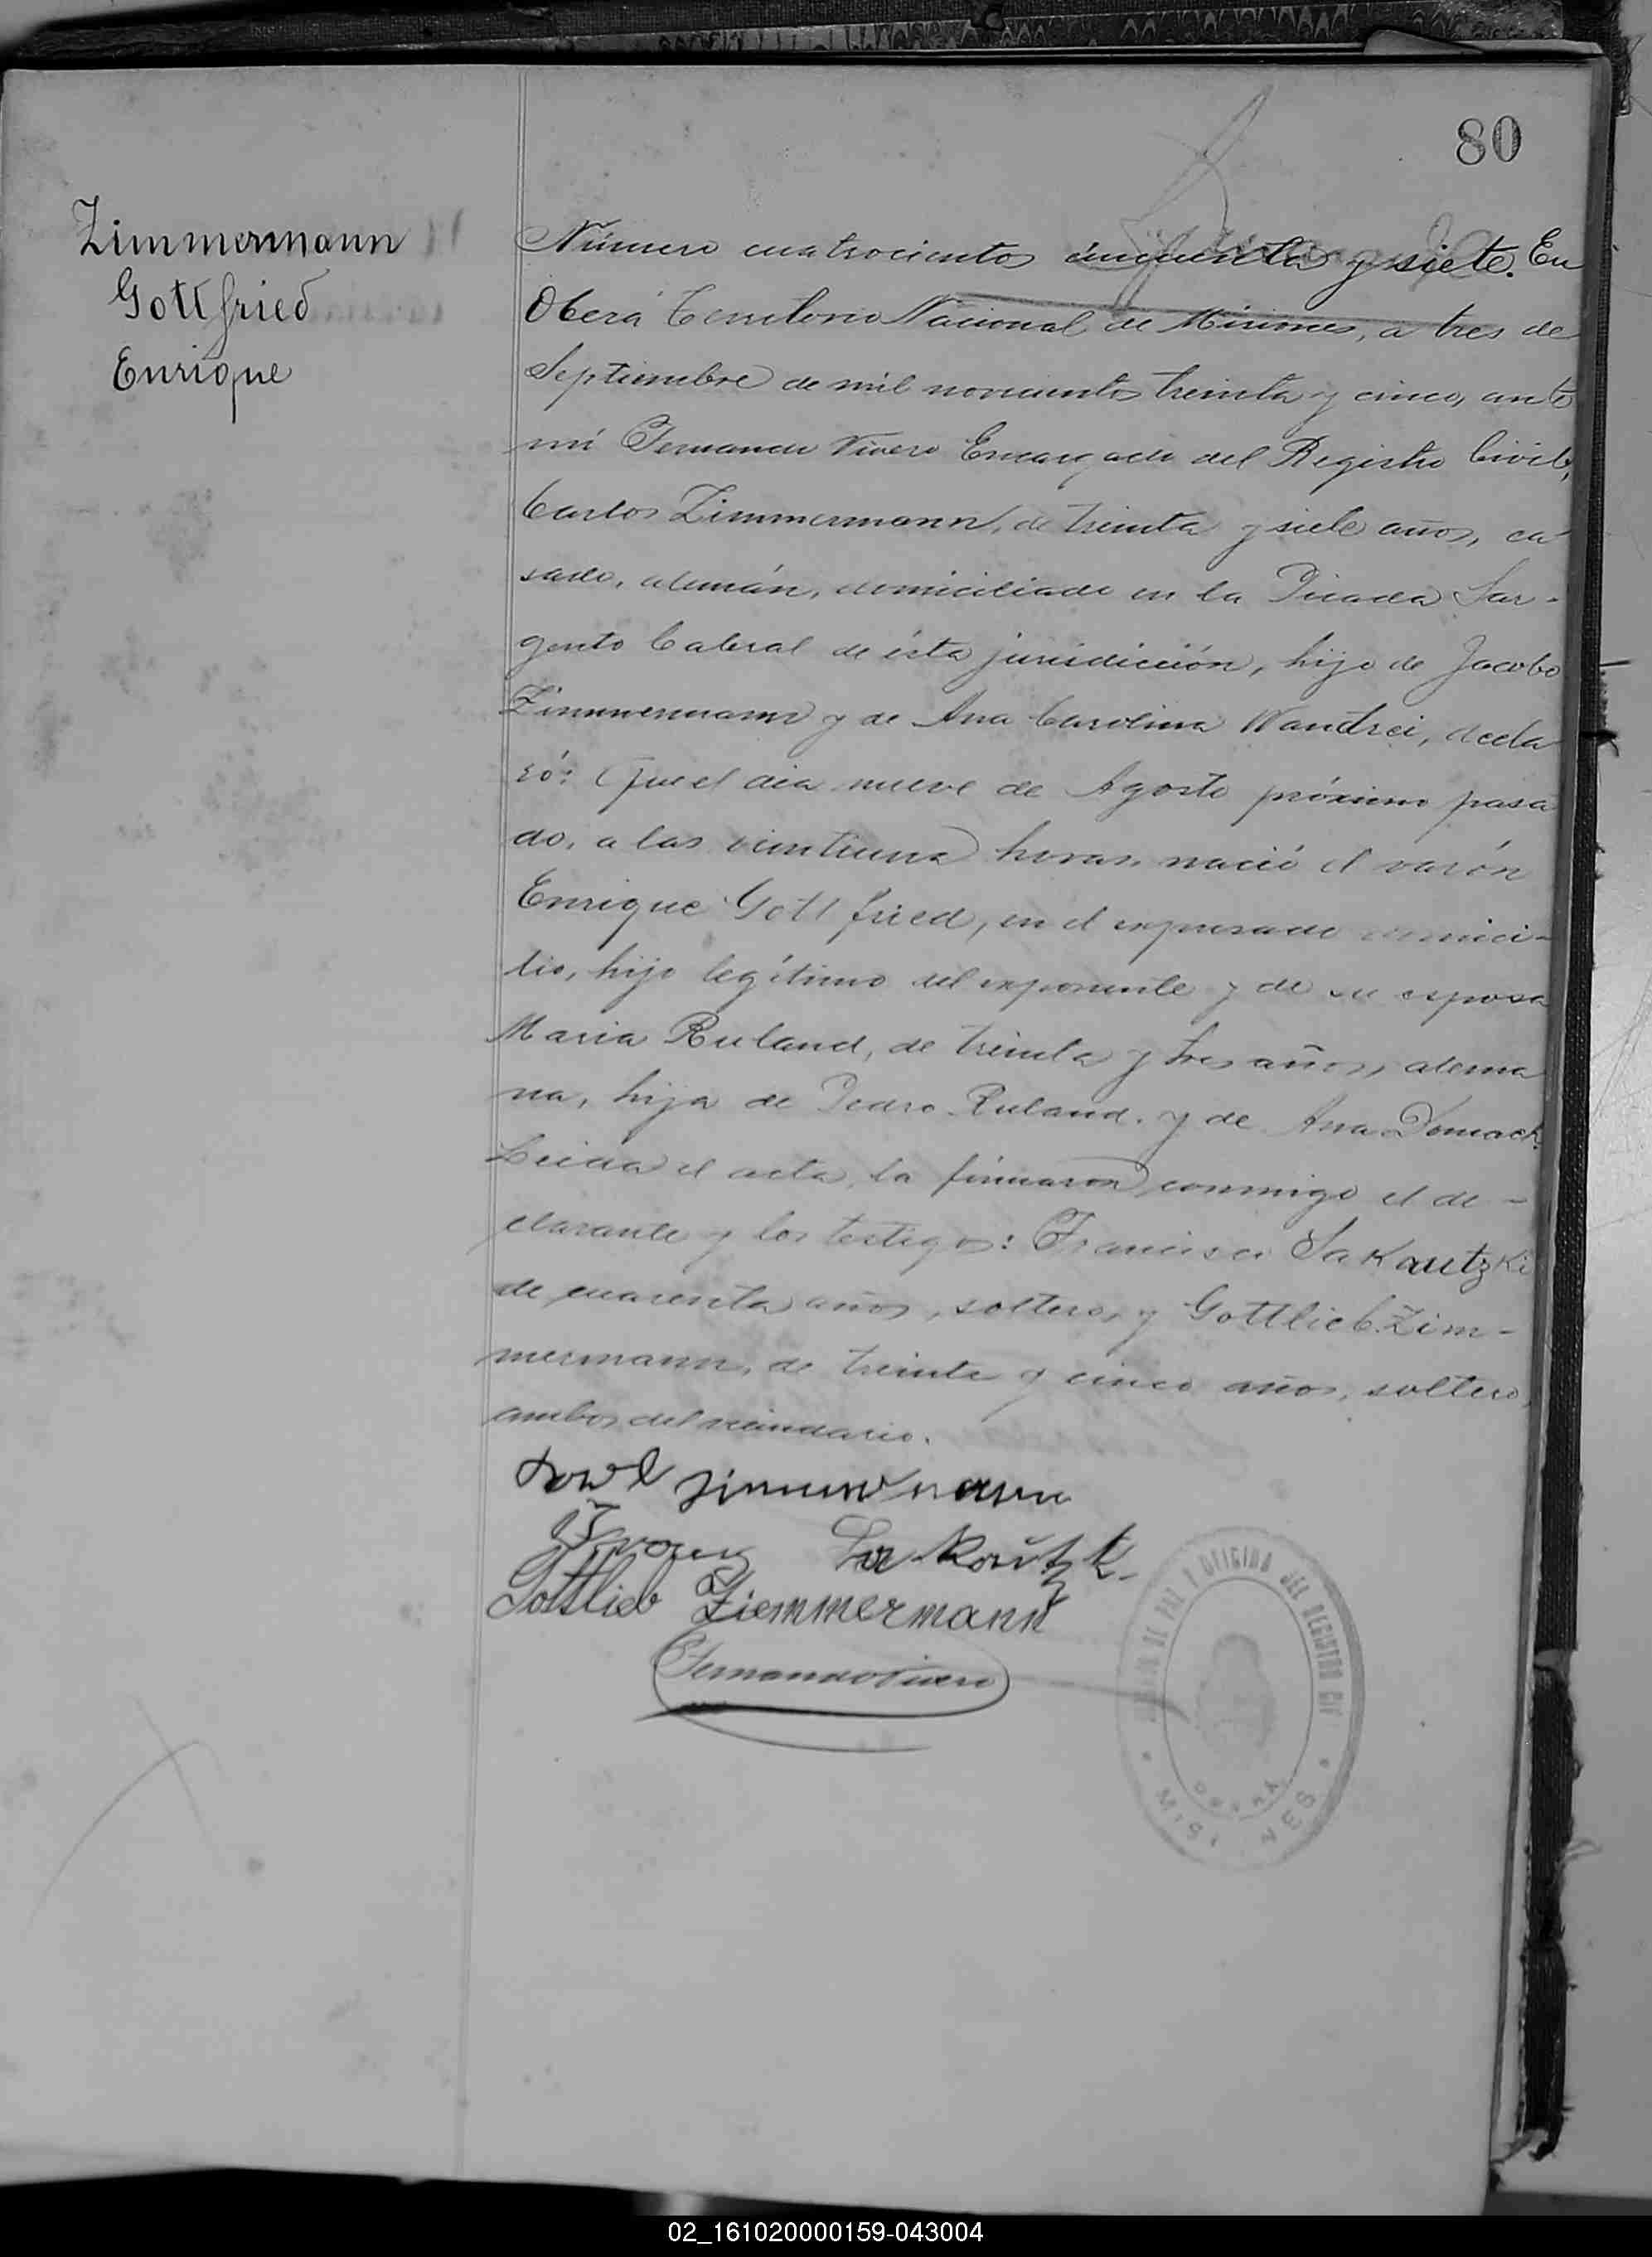 80
Zimmermann
Gottfried
Enrique
Número cuatrocientos cincuenta y siete. En
Oberá Territorio Nacional de Misiones, a tres de
Septiembre de mil novecientos treinta y cinco, ante
mí Fernando Vivero Encargado del Registro Civil,
Carlos Zimmermann, de treinta y siete años, ca
sado, alemán, domiciliado en la Picada Sar-
gento Cabral de ésta jurisdicción, hijo de Jacobo
Zimmermann y de Ana Carolina Wandrei, decla
ró: Que el dia nueve de Agosto próximo pasa
do, a las veintiuna horas, nació el varón
Enrique Gottfried, en el expresado domici-
lio, hijo legítimo del exponente y de su esposa
Maria Ruland, de treinta y tres años, alema
na, hija de Pedro Ruland. y de Ana Domack.
Leida el acta, la firmaron conmigo el de-
clarante y los testigos: Francisco Sakautzki
de cuarenta años, soltero, y Gottlieb Zim-
mermann, de treinta y cinco años, soltero,
ambos del vecindario.
Karl Zimmermann
Franz
Gottlieb Ziemmermann
Fernando Vivero
JUZGADO DE PAZ Y OFICINA DEL REGISTRO CIV
OBERÁ
MISIONES
02_161020000159-043004